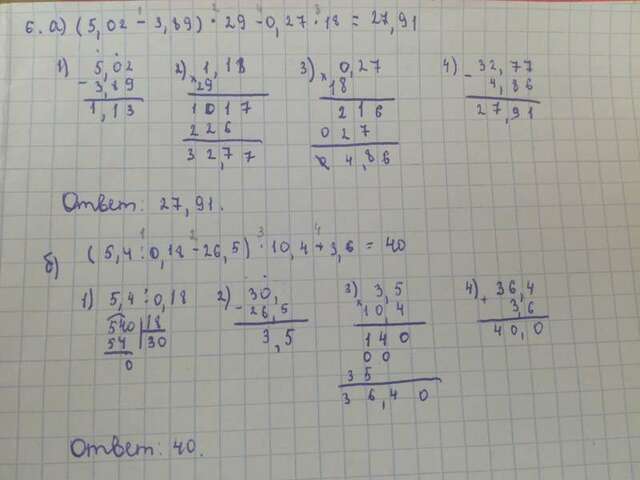 6. а) (5,02 - 3,89) · 29 - 0,27 · 18 = 27,91
1) 5,02 2) 1,18 3) 0,27 4) 32,77
- 3,89 × 29 × 18 - 4,86
1,13 1017 216 27,91
226 027
32,77 4,86
Ответ: 27,91.
б) (5,4 : 0,18 - 26,5) · 10,4 + 3,6 = 40
1) 5,4 : 0,18 2) 30, 3) 3,5 4) 36,4
540 18 - 26,5 × 10,4 + 3,6
54 30 3,5 140 40,0
0 00
35
36,40
Ответ: 40.